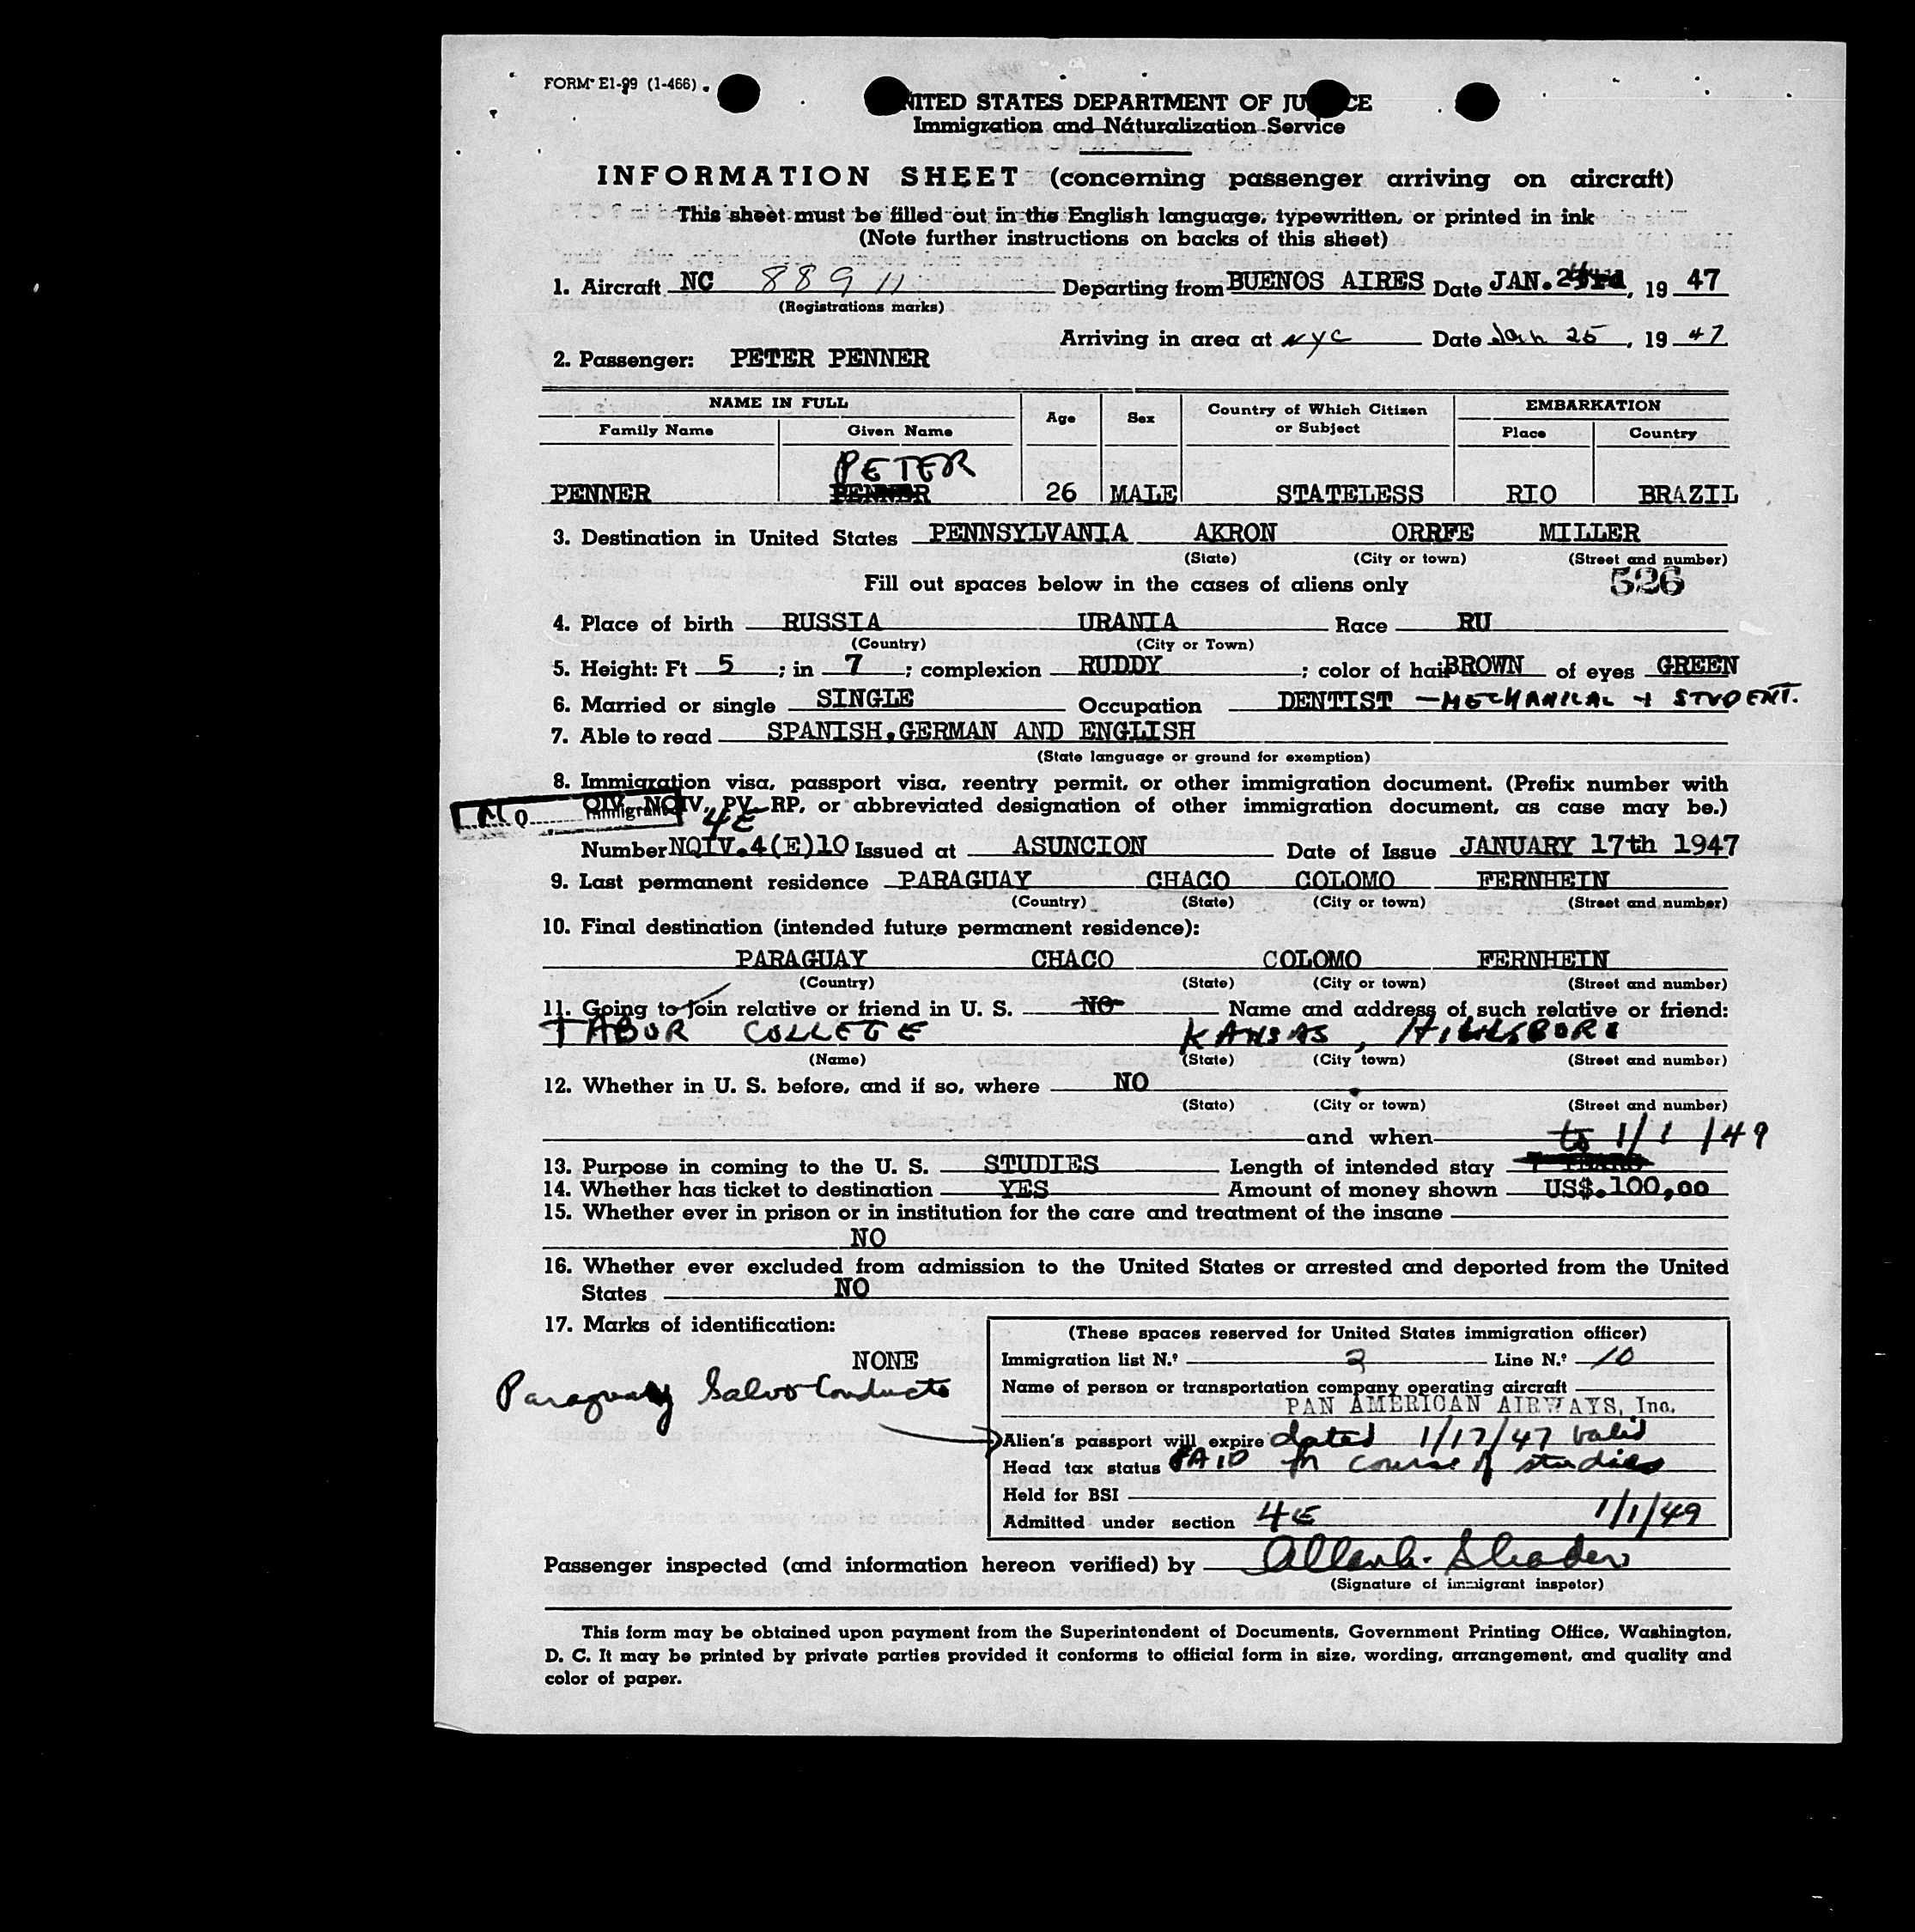 FORM E1-99 (1-466)
UNITED STATES DEPARTMENT OF JUSTICE
Immigration and Naturalization Service
INFORMATION SHEET (concerning passenger arriving on aircraft)
This sheet must be filled out in the English language, typewritten, or printed in ink
(Note further instructions on backs of this sheet)
1. Aircraft NC 88911 Departing from BUENOS AIRES Date JAN. 19 47
(Registrations marks)
Arriving in area at NYC Date Jan 25, 19 47
2. Passenger: PETER PENNER
NAME IN FULL Age Sex Country of Which Citizen or Subject EMBARKATION
Family Name Given Name Place Country
PETER
PENNER PENNER 26 MALE STATELESS RIO BRAZIL
3. Destination in United States PENNSYLVANIA AKRON ORRFE MILLER
(State) (City or town) (Street and number)
Fill out spaces below in the cases of aliens only 526
4. Place of birth RUSSIA URANIA Race RU
(Country) (City or Town)
5. Height: Ft 5 ; in 7 ; complexion RUDDY ; color of hair BROWN of eyes GREEN
6. Married or single SINGLE Occupation DENTIST - MECHANICAL + STUDENT.
7. Able to read SPANISH,GERMAN AND ENGLISH
(State language or ground for exemption)
8. Immigration visa, passport visa, reentry permit, or other immigration document. (Prefix number with
QIV, NQIV, PV, RP, or abbreviated designation of other immigration document, as case may be.)
Immigrant
4E
Number NQIV.4(E)10 Issued at ASUNCION Date of Issue JANUARY 17th 1947
9. Last permanent residence PARAGUAY CHACO COLOMO FERNHEIN
(Country) (State) (City or town) (Street and number)
10. Final destination (intended future permanent residence):
PARAGUAY CHACO COLOMO FERNHEIN
(Country) (State) (City or town) (Street and number)
11. Going to join relative or friend in U. S. NO Name and address of such relative or friend:
TABOR COLLEGE KANSAS, HILLSBORO
(Name) (State) (City town) (Street and number)
12. Whether in U. S. before, and if so, where NO
(State) (City or town) (Street and number)
and when to 1/1/49
13. Purpose in coming to the U. S. STUDIES Length of intended stay
14. Whether has ticket to destination YES Amount of money shown US$.100,00
15. Whether ever in prison or in institution for the care and treatment of the insane
NO
16. Whether ever excluded from admission to the United States or arrested and deported from the United
States NO
17. Marks of identification:
NONE
Paraguay Salvo Conducto
(These spaces reserved for United States immigration officer)
Immigration list N.º 2 Line N.º 10
Name of person or transportation company operating aircraft
PAN AMERICAN AIRWAYS, Inc.
Alien's passport will expire dated 1/17/47 valid
Head tax status PAID for course of studies
Held for BSI
Admitted under section 4E 1/1/49
Passenger inspected (and information hereon verified) by
(Signature of immigrant inspetor)
This form may be obtained upon payment from the Superintendent of Documents, Government Printing Office, Washington,
D. C. It may be printed by private parties provided it conforms to official form in size, wording, arrangement, and quality and
color of paper.